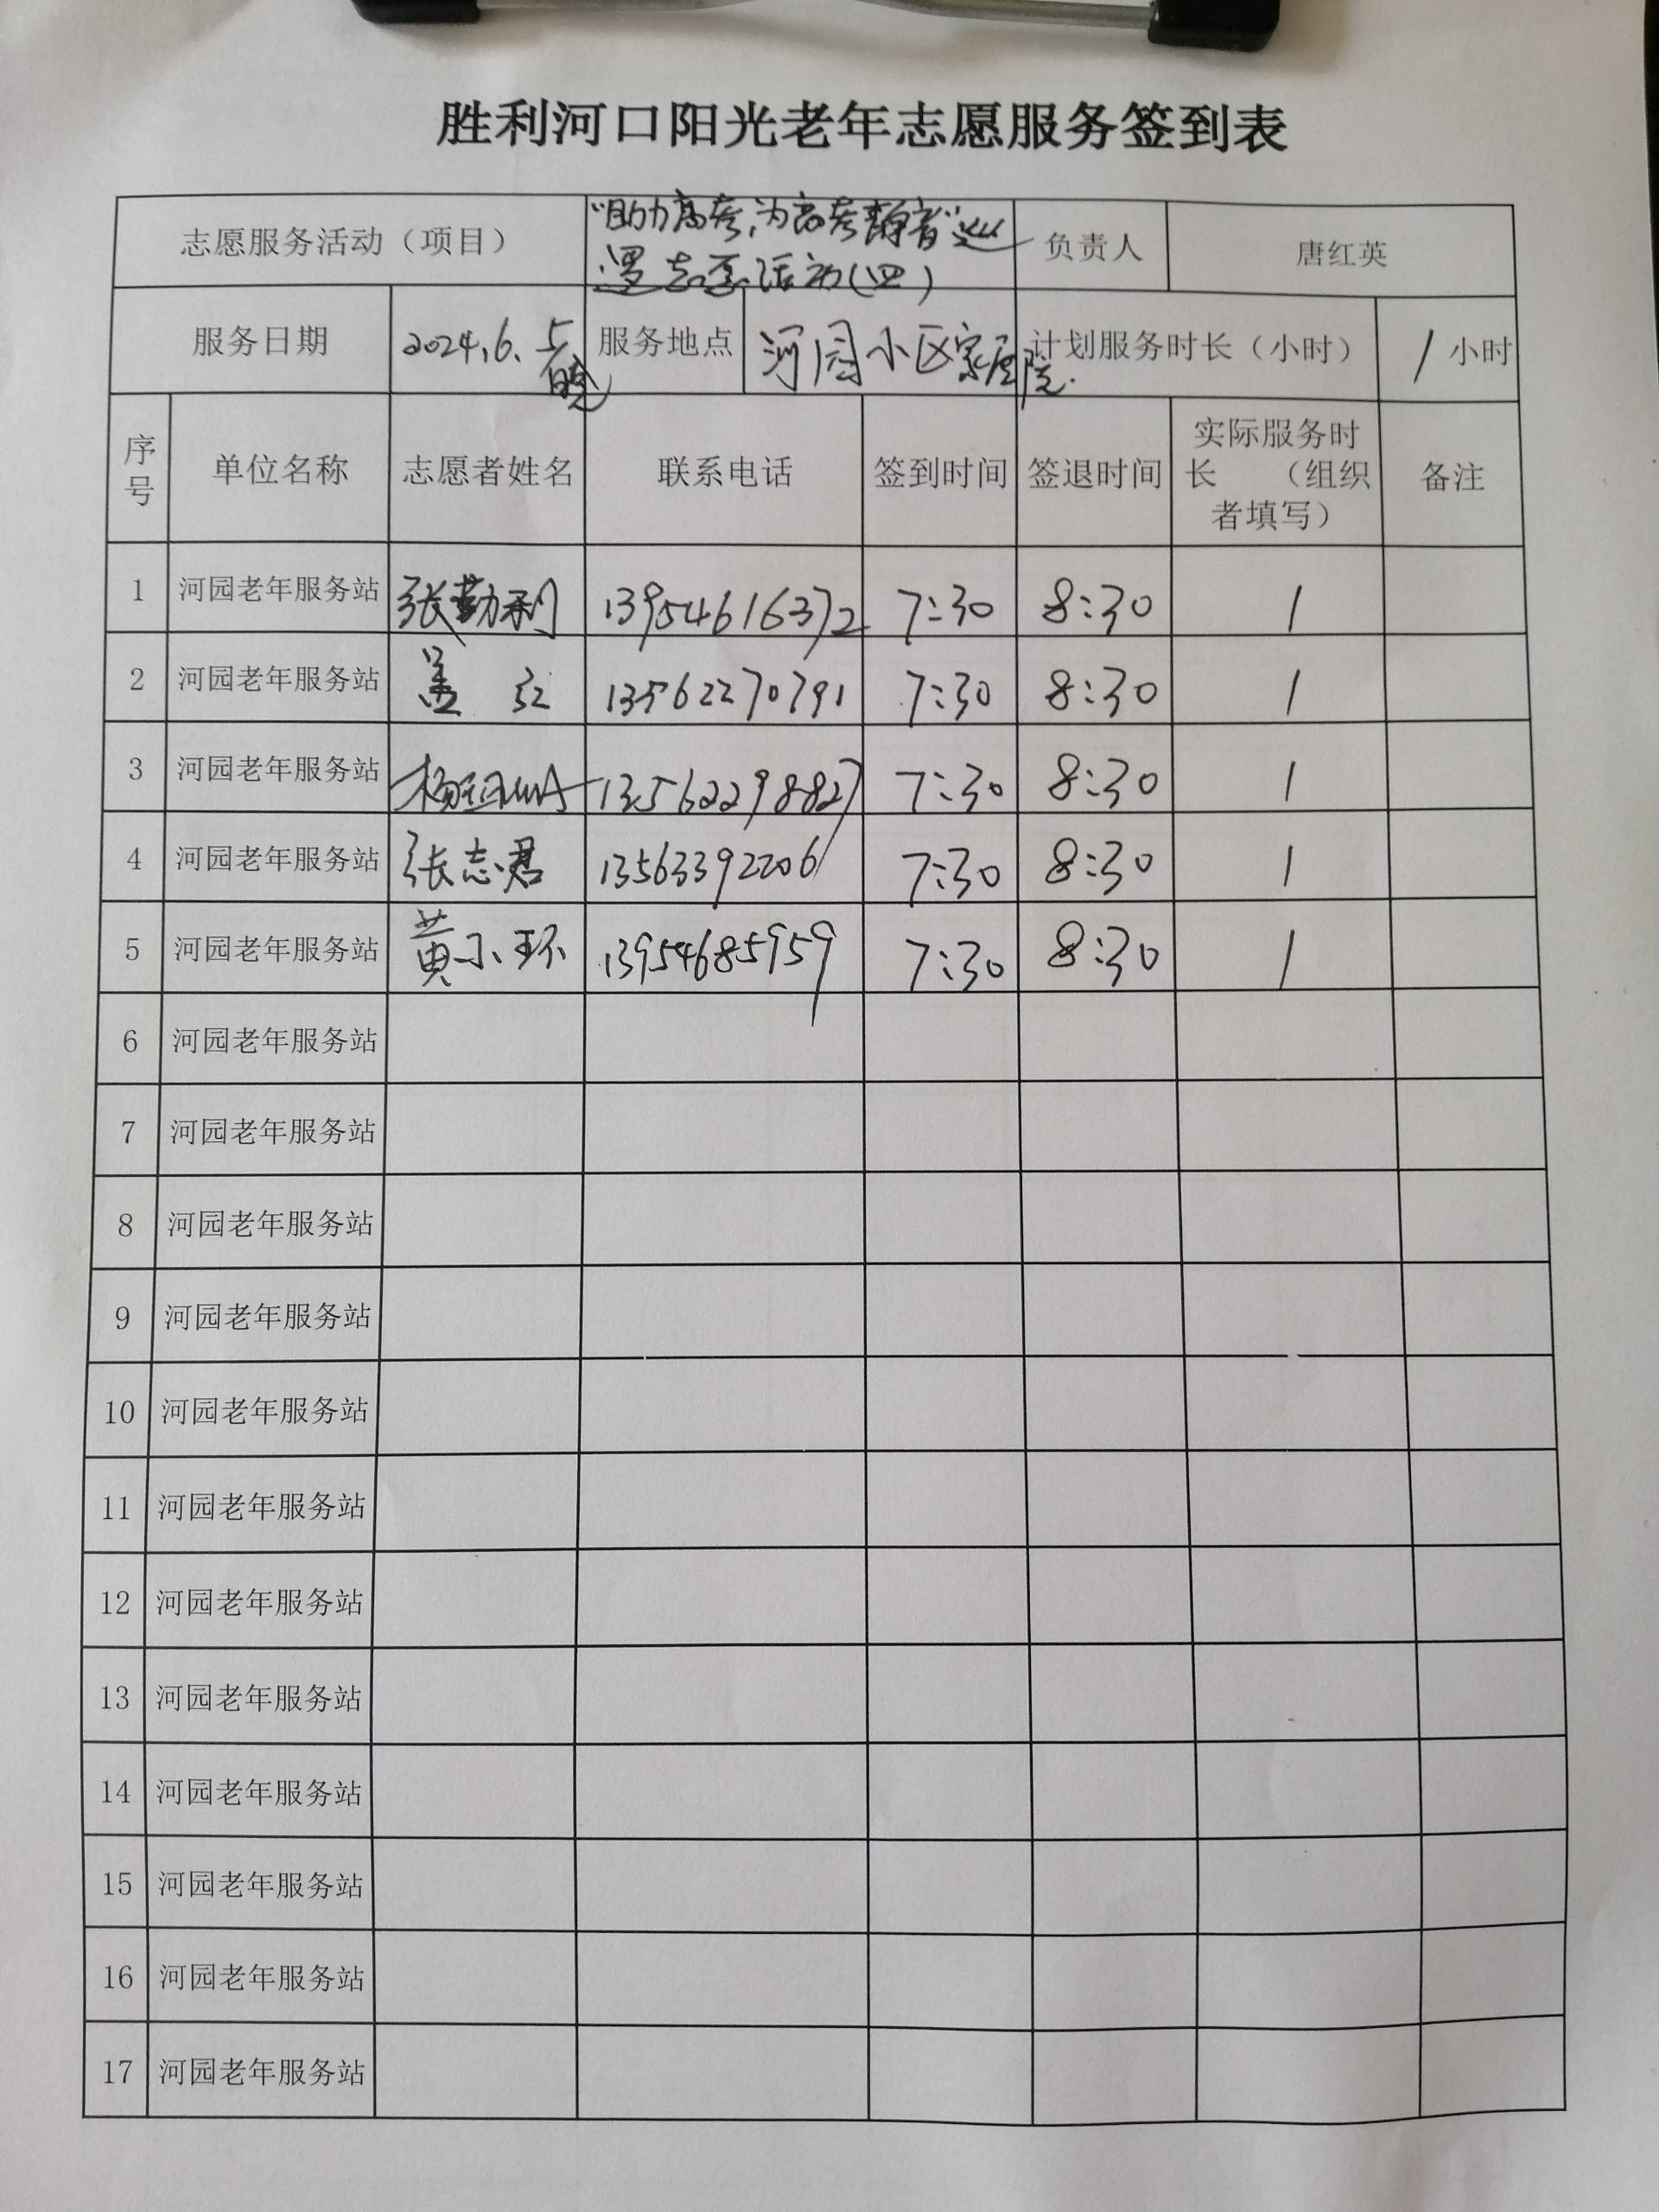 胜利河口阳光老年志愿服务签到表
志愿服务活动（项目） "助力高考,为高考静音"巡逻志愿活动(四) 负责人 唐红英
服务日期 2024.6.5晚 服务地点 河园小区家属院. 计划服务时长（小时） 1 小时
序号 单位名称 志愿者姓名 联系电话 签到时间 签退时间 实际服务时长 （组织者填写） 备注
1 河园老年服务站 张勤利 13954616372 7:30 8:30 1
2 河园老年服务站 盖红 13562270791 7:30 8:30 1
3 河园老年服务站 13562298827 7:30 8:30 1
4 河园老年服务站 张志君 13563392206 7:30 8:30 1
5 河园老年服务站 黄小环 13954685959 7:30 8:30 1
6 河园老年服务站
7 河园老年服务站
8 河园老年服务站
9 河园老年服务站
10 河园老年服务站
11 河园老年服务站
12 河园老年服务站
13 河园老年服务站
14 河园老年服务站
15 河园老年服务站
16 河园老年服务站
17 河园老年服务站